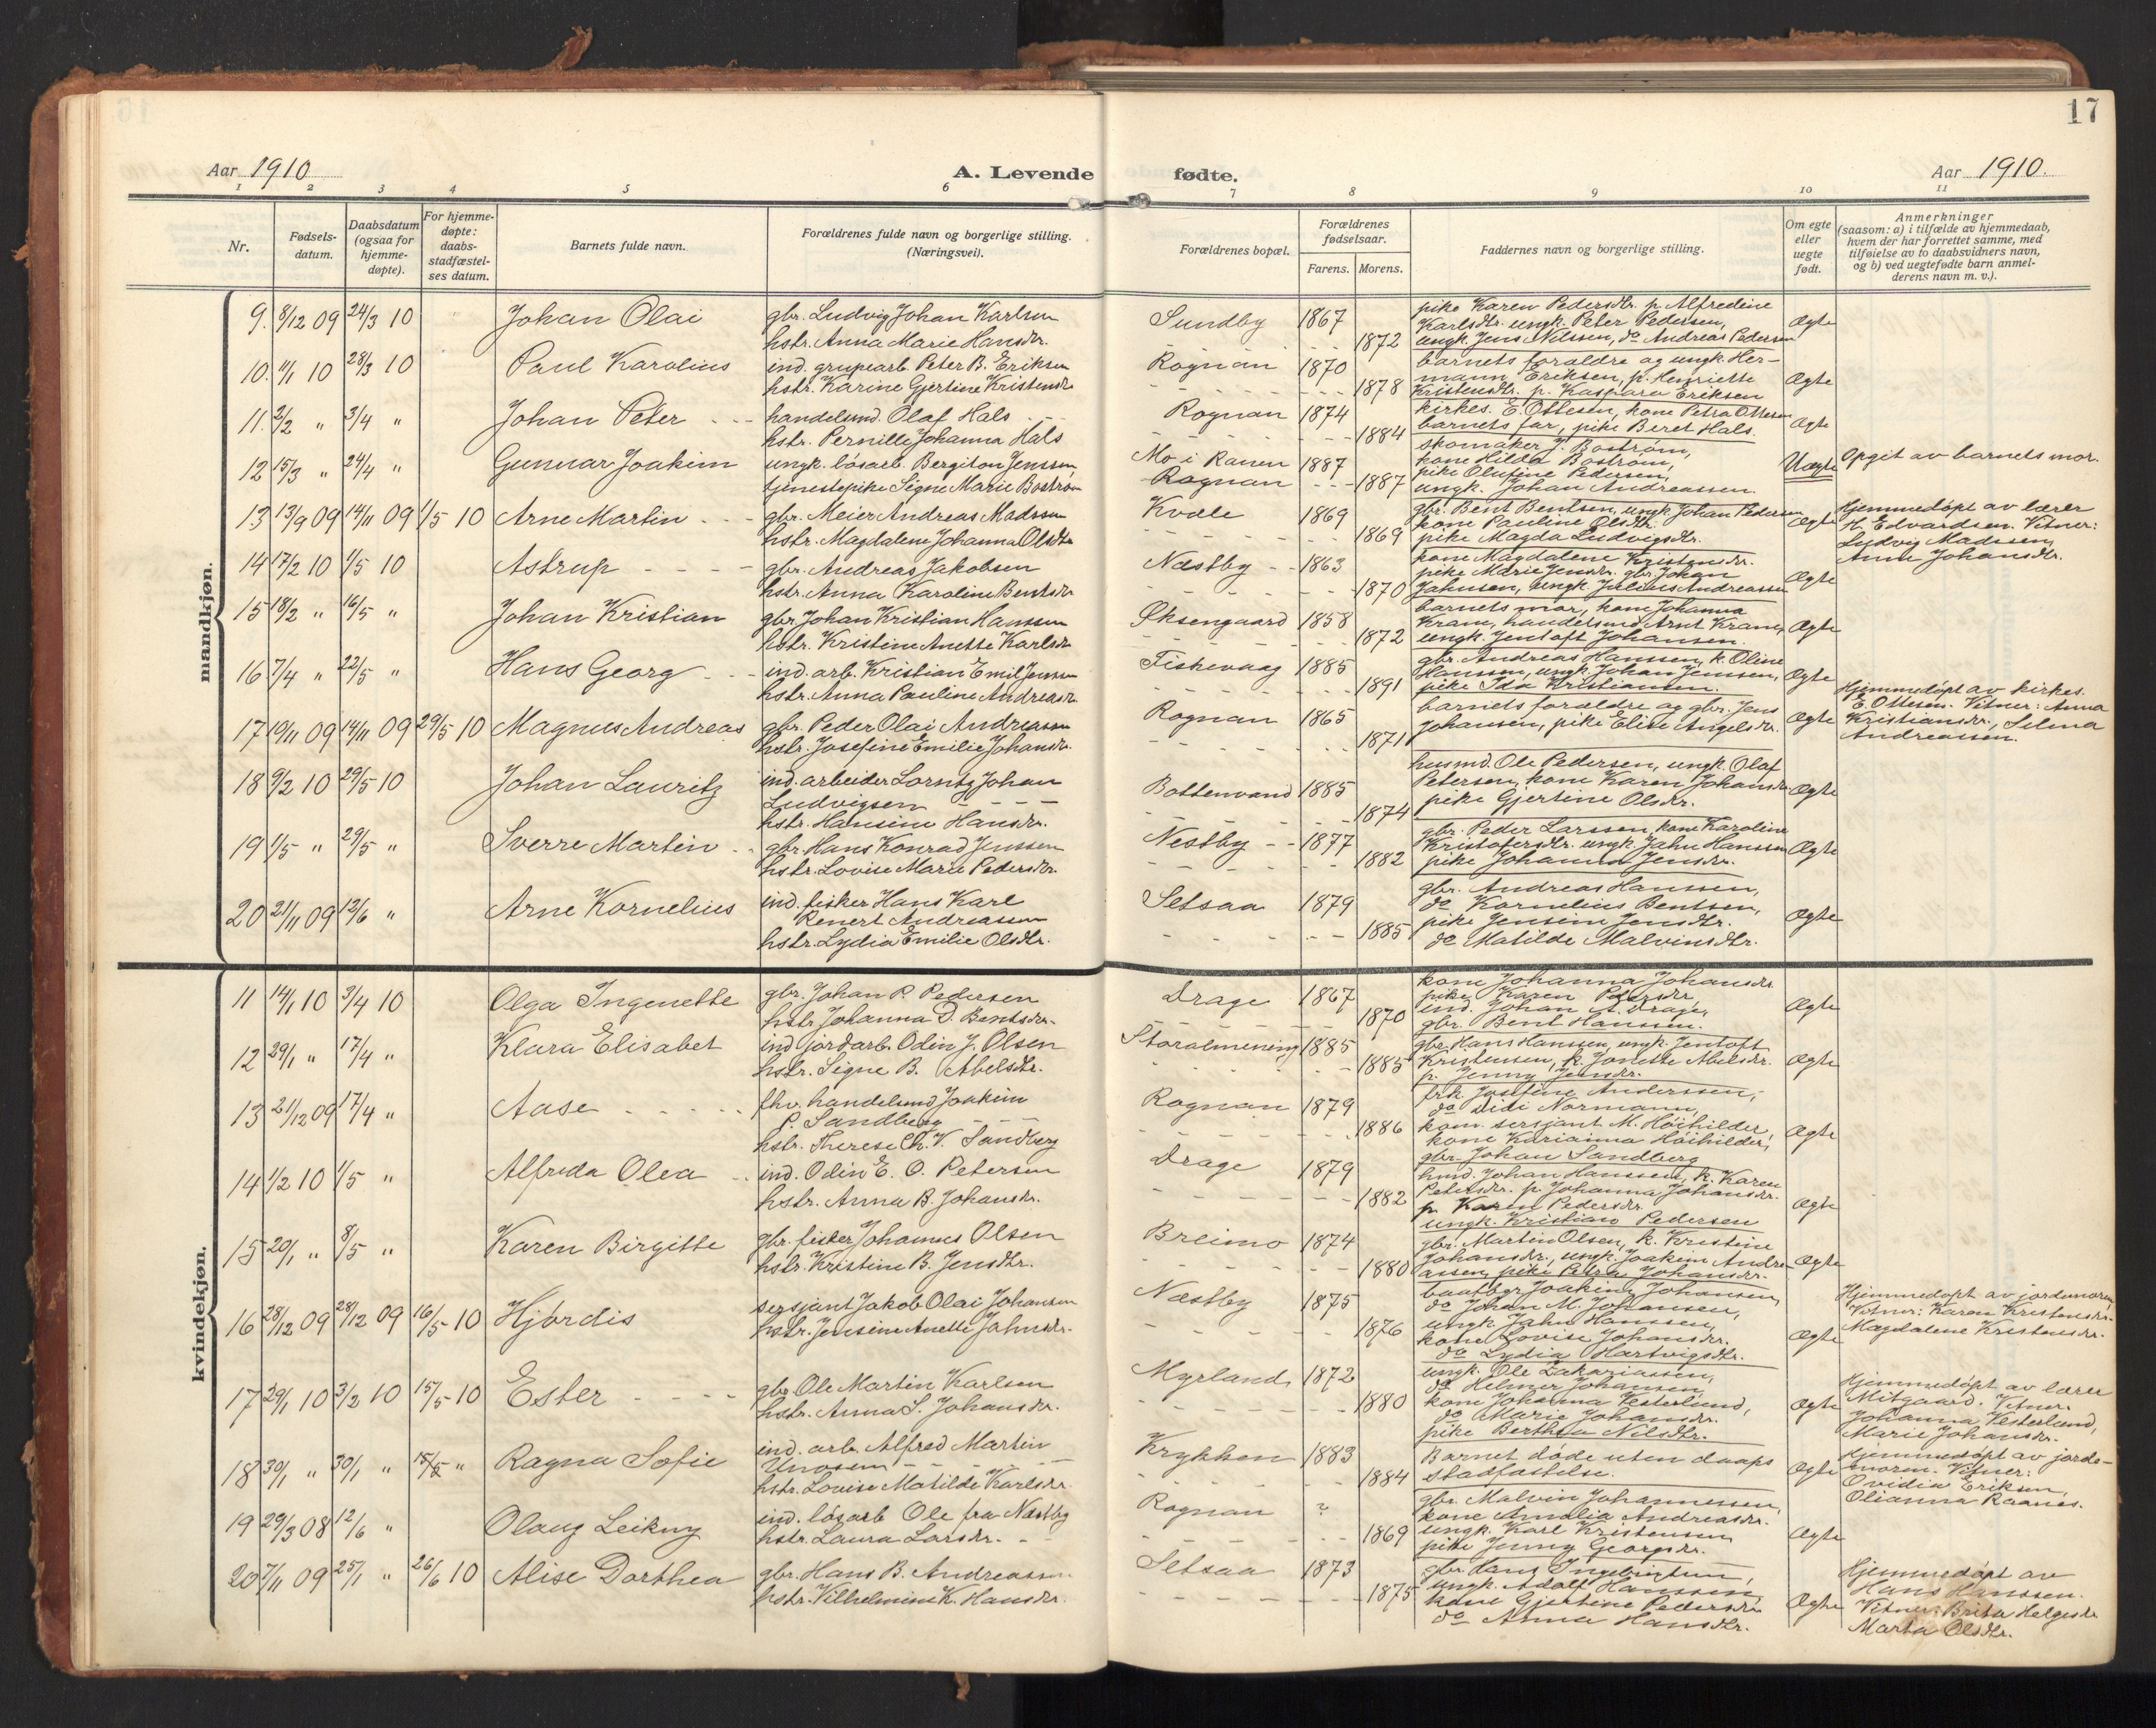 17
Aar 1910
A. Levende fødte.
Aar 1910.
1 2 3 4 5 6 7 8 9 10 11
Nr.
Fødsels-
datum.
Daabsdatum
(ogsaa for
hjemme-
døpte).
For hjemme-
døpte:
daabs-
stadfæstel-
ses datum.
Barnets fulde navn.
Forældrenes fulde navn og borgerlige stilling.
(Næringsvei).
Forældrenes bopæl.
Forældrenes
fødselsaar.
Farens. Morens.
Faddernes navn og borgerlige stilling.
Om egte
eller
uegte
født.
Anmerkninger
(saasom: a) i tilfælde av hjemmedaab,
hvem der har forrettet samme, med
tilføielse av to daabsvidners navn,
og b) ved uegtefødte barn anmel-
derens navn m. v.).
mandkjøn.
9. 8/12 09 24/3 10 Johan Olai
gbr. Ludvig Johan Karlsen
hstr. Anna Marie Hansdr.
Sundby 1867
1872
pike Karen Pedersdtr. p. Alfredine
Karlsdtr. ungk. Peter Pedersen,
ungk. Jens Nilssen, do Andreas Pedersen
Ægte
10. 1/1 10 28/3 10 Paul Karolius
ind. grupearb. Peter B. Eriksen
hstr. Karine Gjertine Kristensdr
Rognan 1870
1878
barnets forældre og ungk. Her-
mann Eriksen, p. Henriette
Kristensdtr. p. Kaspara Eriksen
Ægte
11. 2/2 " 3/4 " Johan Peter
handelsmd. Olaf Hals
hstr. Pernille Johanna Hals
Rognan 1874
1884
kirkes. E. Ottesen, kone Petra Ottesen
barnets far, pike Beret Hals.
Ægte
12 15/3 " 24/4 " Gunnar Joakim
ungk. løsarb. Bergiton Jenssen,
tjenestepike Signe Marie Bostrøm
Mo i Ranen 1887
Rognan 1887
skomaker J. Bostrøm,
kone Hilda Bostrøm,
pike Olufine Pedersen,
ungk. Johan Andreassen.
Uægte
Opgit av barnets mor.
13 13/9 09 14/11 09 1/5 10 Arne Martin
gbr. Meier Andreas Madssen
hstr. Magdalene Johanna Olsdtr
Kvæle 1869
1869
gbr. Bent Bentsen, ungk. Johan Pedersen
kone Pauline Olsdtr.
pike Magda Ludvigsdtr.
Ægte
Hjemmedøpt av lærer
H. Edvardsen. Vitner:
Ludvig Madssen,
Anne Johansdtr.
14 17/2 10 1/5 10 Astrup
gbr. Andreas Jakobsen
hstr. Anna Karoline Bentsdr
Næstby 1863
1870
kone Magdalene Kristensdr.
pike Marie Jensdr. gbr. Johan
Jahnsen, ungk. Julius Andreassen
Ægte
15 18/2 " 16/5 " Johan Kristian
gbr. Johan Kristian Hanssen
hstr. Kristine Anette Karlsdr
Øksengaard 1858
1872
barnets mor, kone Johanna
Krane, handelsmd. Arnt Krane,
ungk. Jentoft Johansen
Ægte
16 7/4 " 22/5 " Hans Georg
ind. arb. Kristian Emil Jenssen
hstr. Anna Pauline Andreasdr.
Fiskevaag 1885
1891
gbr. Andreas Hanssen, k. Oline
Hanssen, ungk. Johan Jenssen,
pike Ida Kristiansen.
Ægte
17 19/11 09 14/11 09 29/5 10 Magnus Andreas
gbr. Peder Olai Andreassen
hstr. Josefine Emilie Johansdr.
Rognan 1865
1871
barnets forældre og gbr. Jens
Johansen, pike Elise Angelsdr.
Ægte
Hjemmedøpt av kirkes.
E. Ottesen. Vitner: Anna
Kristiansdr., Selma
Andreassen.
18 9/2 10 29/5 10 Johan Lauritz
ind. arbeider Lorntz Johan
Ludvigsen
hstr. Hansine Hansdr.
Bottenvand 1885
1874
husmd. Ole Pedersen, ungk. Olaf
Petersen, kone Karen Johansdr.
pike Gjertine Olsdtr.
Ægte
19 1/5 " 29/5 " Sverre Martin
gbr. Hans Konrad Jenssen
hstr. Lovise Marie Pedersdr.
Nestby 1877
1882
gbr. Peder Larssen, kone Karoline
Kristofersdtr. ungk. Jahn Hanssen
pike Johanna Jensdr.
Ægte
20 21/11 09 12/6 " Arne Kornelius
ind. fisker Hans Karl
Renert Andreassen
hstr. Lydia Emilie Olsdtr.
Setsaa 1879
1885
gbr. Andreas Hanssen,
do Kornelius Bentsen,
pike Jensine Jensdtr.
do Matilde Malvinsdtr.
Ægte
kvindekjøn.
11 14/1 10 3/4 10 Olga Ingenette
gbr. Johan P. Pedersen
hstr. Johanna D. Bentsdr.
Drage 1867
1870
kone Johanna Johansdr
pike Karen Pedersdr,
ind. Johan A. Drage,
gbr. Bent Hanssen.
Ægte
12 29/1 " 17/4 " Klara Elisabet
ind. jordarb. Odin J. Olsen
hstr. Signe B. Abelsdtr.
Storalmening 1885
1885
gbr. Hans Hanssen, ungk. Jentoft
Kristensen, k. Jonette Abelsdr.
p. Jenny Jensdr.
Ægte
13 21/12 09 17/4 " Aase
fhv. handelsmd Joakim
P. Sandberg
hstr. Therese Ch. V. Sandberg
Rognan 1879
1886
frk Josefine Anderssen,
do Didi Normann,
kom. sersjant M. Høihilder,
kone Karianna Høihilder,
gbr. Johan Sandberg
Ægte
14 1/2 10 1/5 " Alfreda Olea
ind. Odin E. O. Petersen
hstr. Anna B. Johansdr.
Drage 1879
1882
hmd. Johan Hanssen, k. Karen
Petersdr. p. Johanna Johansdr.
p. Karen Pedersdr.
ungk. Kristian Pedersen
Ægte
15 20/1 " 8/5 " Karen Birgitte
gbr. fisker Johannes Olsen
hstr. Kristine B. Jensdtr.
Breimo 1874
1880
gbr. Martin Olsen, k. Kristine
Johansdr., ungk. Joakim Andre-
assen, pike Petra Johansdr.
Ægte
16 28/12 09 28/12 09 16/5 10 Hjørdis
sersjant Jakob Olai Johansen
hstr. Jensine Anette Jahnsdr.
Næstby 1875
1876
baatbgr Joakim Johansen,
do Johan M. Johansen,
ungk. Jahn Hanssen,
kone Lovise Johansdr.
do Lydia Hartvigsdtr.
Ægte
Hjemmedøpt av jordemoren.
Vitner: Karen Kristensdr.
Magdalene Kristensdr.
17 29/1 10 3/2 10 15/5 10 Ester
gbr. Ole Martin Karlsen
hstr. Anna S. Johansdr.
Myrland 1872
1880
ungk. Ole Zakariassen,
do Helmer Johansen,
kone Johanna Vesterlund,
do Marie Johansdr.
pike Berthea Nilsdtr.
Ægte
Hjemmedøpt av lærer
Mitgaard. Vitner:
Johanna Vesterlund,
Marie Johansdr.
18 30/1 " 30/1 " 15/5 " Ragna Sofie
ind. arb. Alfred Martin
Unosen
hstr. Lovise Matilde Karlsdr.
Krykken 1883
1884
Barnet døde uten daaps
stadfæstelse.
Ægte
Hjemmedøpt av jorde-
moren. Vitner:
Ovidia Eriksen,
Olianna Raanes.
19 29/3 08 12/6 " Olaug Leikny
ind. løsarb Ole fra Næstby
hstr. Laura Larsdr.
Rognan ?
1869
gbr. Malvin Johannessen,
kone Amalia Andreasdr.
ungk. Karl Kristensen
pike Jenny Georgsdr.
Ægte
20 7/11 09 25/1 " 26/6 10 Alise Dorthea
gbr. Hans B. Andreassen
hstr. Vilhelmine K. Hansdr.
Setsaa 1873
1875
gbr. Hans Ingebrigtsen,
ungk. Adolf Hanssen,
kone Gjertine Pedersdr.
do Anna Hansdtr.
Ægte
Hjemmedøpt av
Hans Hanssen.
Vitner: Brita Helgesdr
Marta Olsdtr.